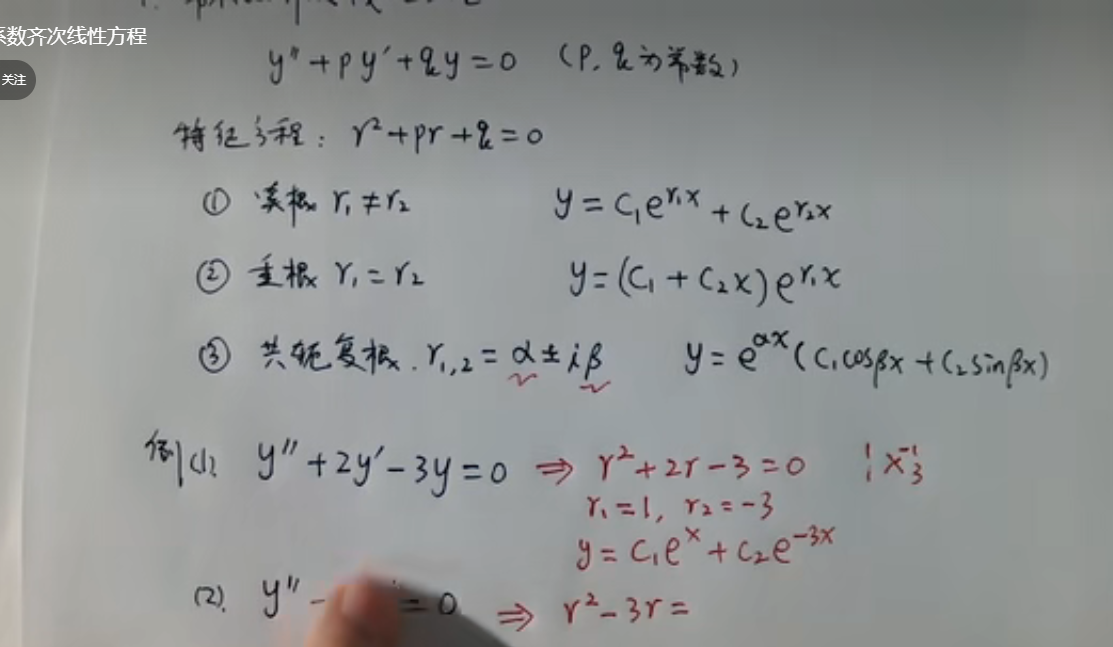 系数齐次线性方程
关注
y″+py′+qy=0 (P,q为常数)
特征方程: r²+pr+q=0
① 实根 r₁≠r₂ y=C₁e^{r₁x}+C₂e^{r₂x}
② 重根 r₁=r₂ y=(C₁+C₂x)e^{r₁x}
③ 共轭复根. r₁,₂=α±iβ y=e^{αx}(C₁cosβx+C₂sinβx)
例(1). y″+2y′-3y=0 ⇒ r²+2r-3=0 1 -1
1 3
r₁=1, r₂=-3
y=C₁e^x+C₂e^{-3x}
(2). y″- =0 ⇒ r²-3r=